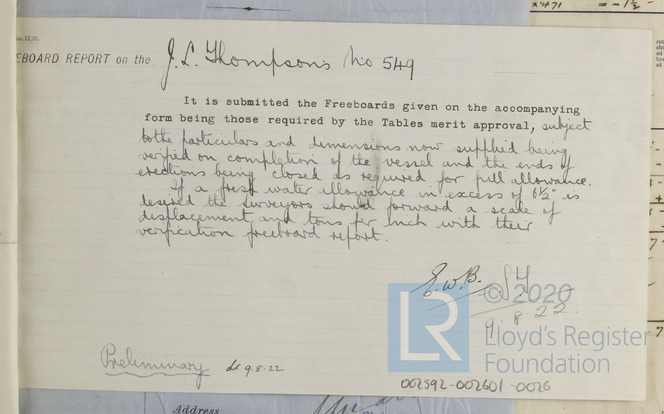 EBOARD REPORT on the J. L. Thompsons No 549
It is submitted the Freeboards given on the accompanying
form being those required by the Tables merit approval, subject
to the particulars and dimensions now supplied being
verified on completion of the vessel and the ends of
erections being closed as required for full allowance.
If a fresh water allowance in excess of 6½" is
desired the surveyors should forward a scale of
displacement and tons per inch with their
verification freeboard report.
E.W.B.
9.8.22
Preliminary 9.8.22
LR
© 2020
Lloyd's Register
Foundation
002592-002601-0026
Address